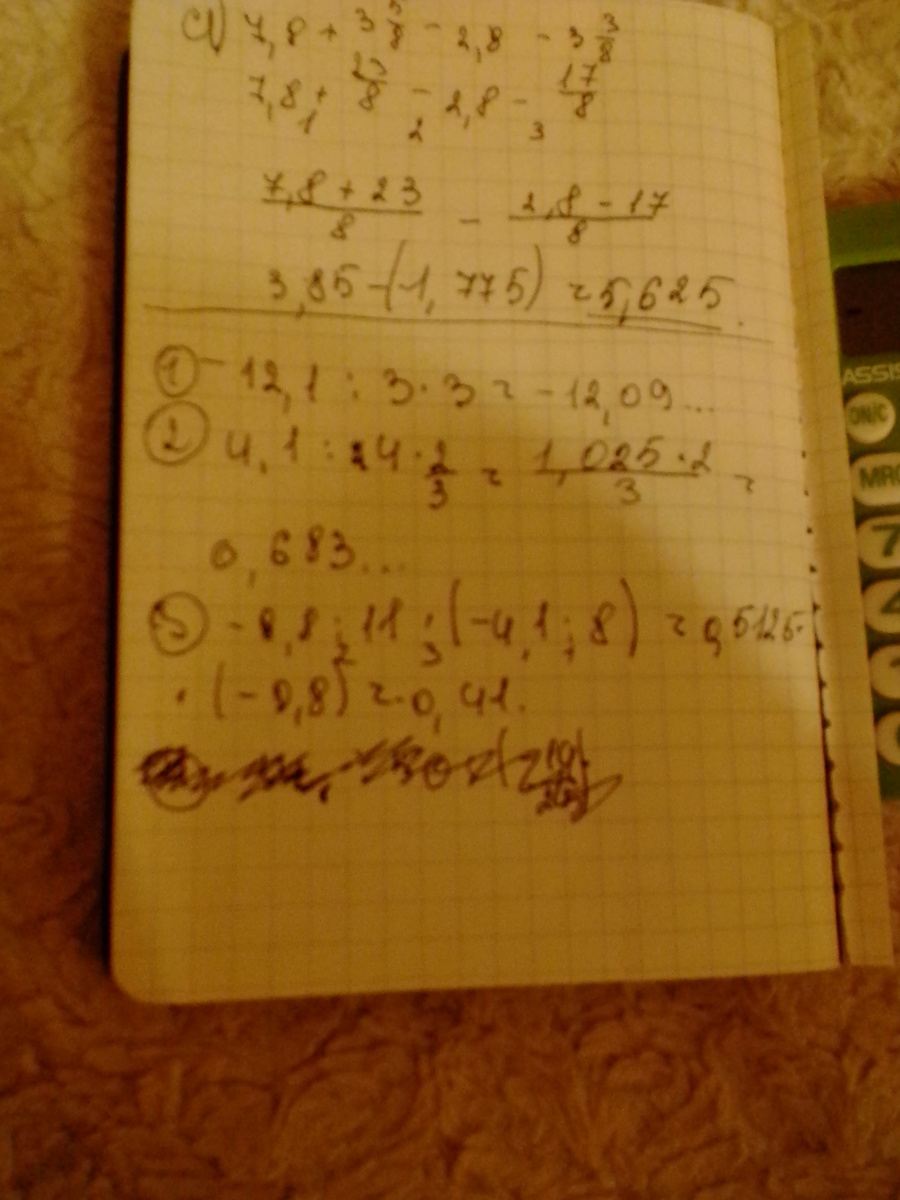 c) 7,8 + 3 5/8 - 2,8 - 3 3/8
7,8 + 23/8 - 2,8 - 17/8
1 2 3
7,8 + 23 / 8 - 2,8 - 17 / 8
3,85 - (1,775) = 5,625.
① - 12,1 : 3 · 3 = -12,09...
② 4,1 : 4 · 2/3 = 1,025 · 2 / 3 =
0,683...
③ - 8,8 : 11 · (-4,1 : 8) = 0,5125
2 3 1
· (-0,8) = 0,41.
ASSIS
ON/C
MRC
7